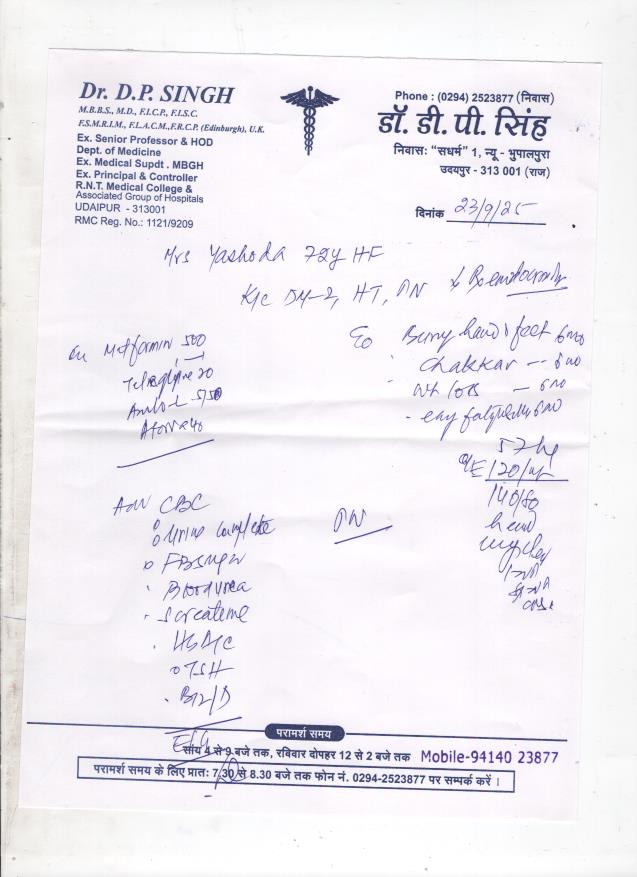 Dr. D.P. SINGH
M.B.B.S., M.D., F.I.C.P., F.I.S.C.
F.S.M.R.I.M., F.L.A.C.M., F.R.C.P. (Edinburgh), U.K.
Ex. Senior Professor & HOD
Dept. of Medicine
Ex. Medical Supdt . MBGH
Ex. Principal & Controller
R.N.T. Medical College &
Associated Group of Hospitals
UDAIPUR - 313001
RMC Reg. No.: 1121/9209
Phone : (0294) 2523877 (निवास)
डॉ. डी. पी. सिंह
निवासः "सधर्म" 1, न्यू - भुपालपुरा
उदयपुर - 313 001 (राज)
दिनांक 23/9/25
Mrs Yashoda 72y HF
K/c DM-2, HT, PN
Metformin 500
20
5/50
Atorva 40
hand & feet 6mo
Chakkar -- 6mo
wt loss - 6mo
- easy 6mo
57kg
O/E 120/
140/80
Adv CBC
Urine complete
Blood urea
S creatinine
HbA1c
TSH
B12/D
ECG
PN
परामर्श समय
सांय 4 से 9 बजे तक, रविवार दोपहर 12 से 2 बजे तक Mobile-94140 23877
परामर्श समय के लिए प्रातः 7.30 से 8.30 बजे तक फोन नं. 0294-2523877 पर सम्पर्क करें ।